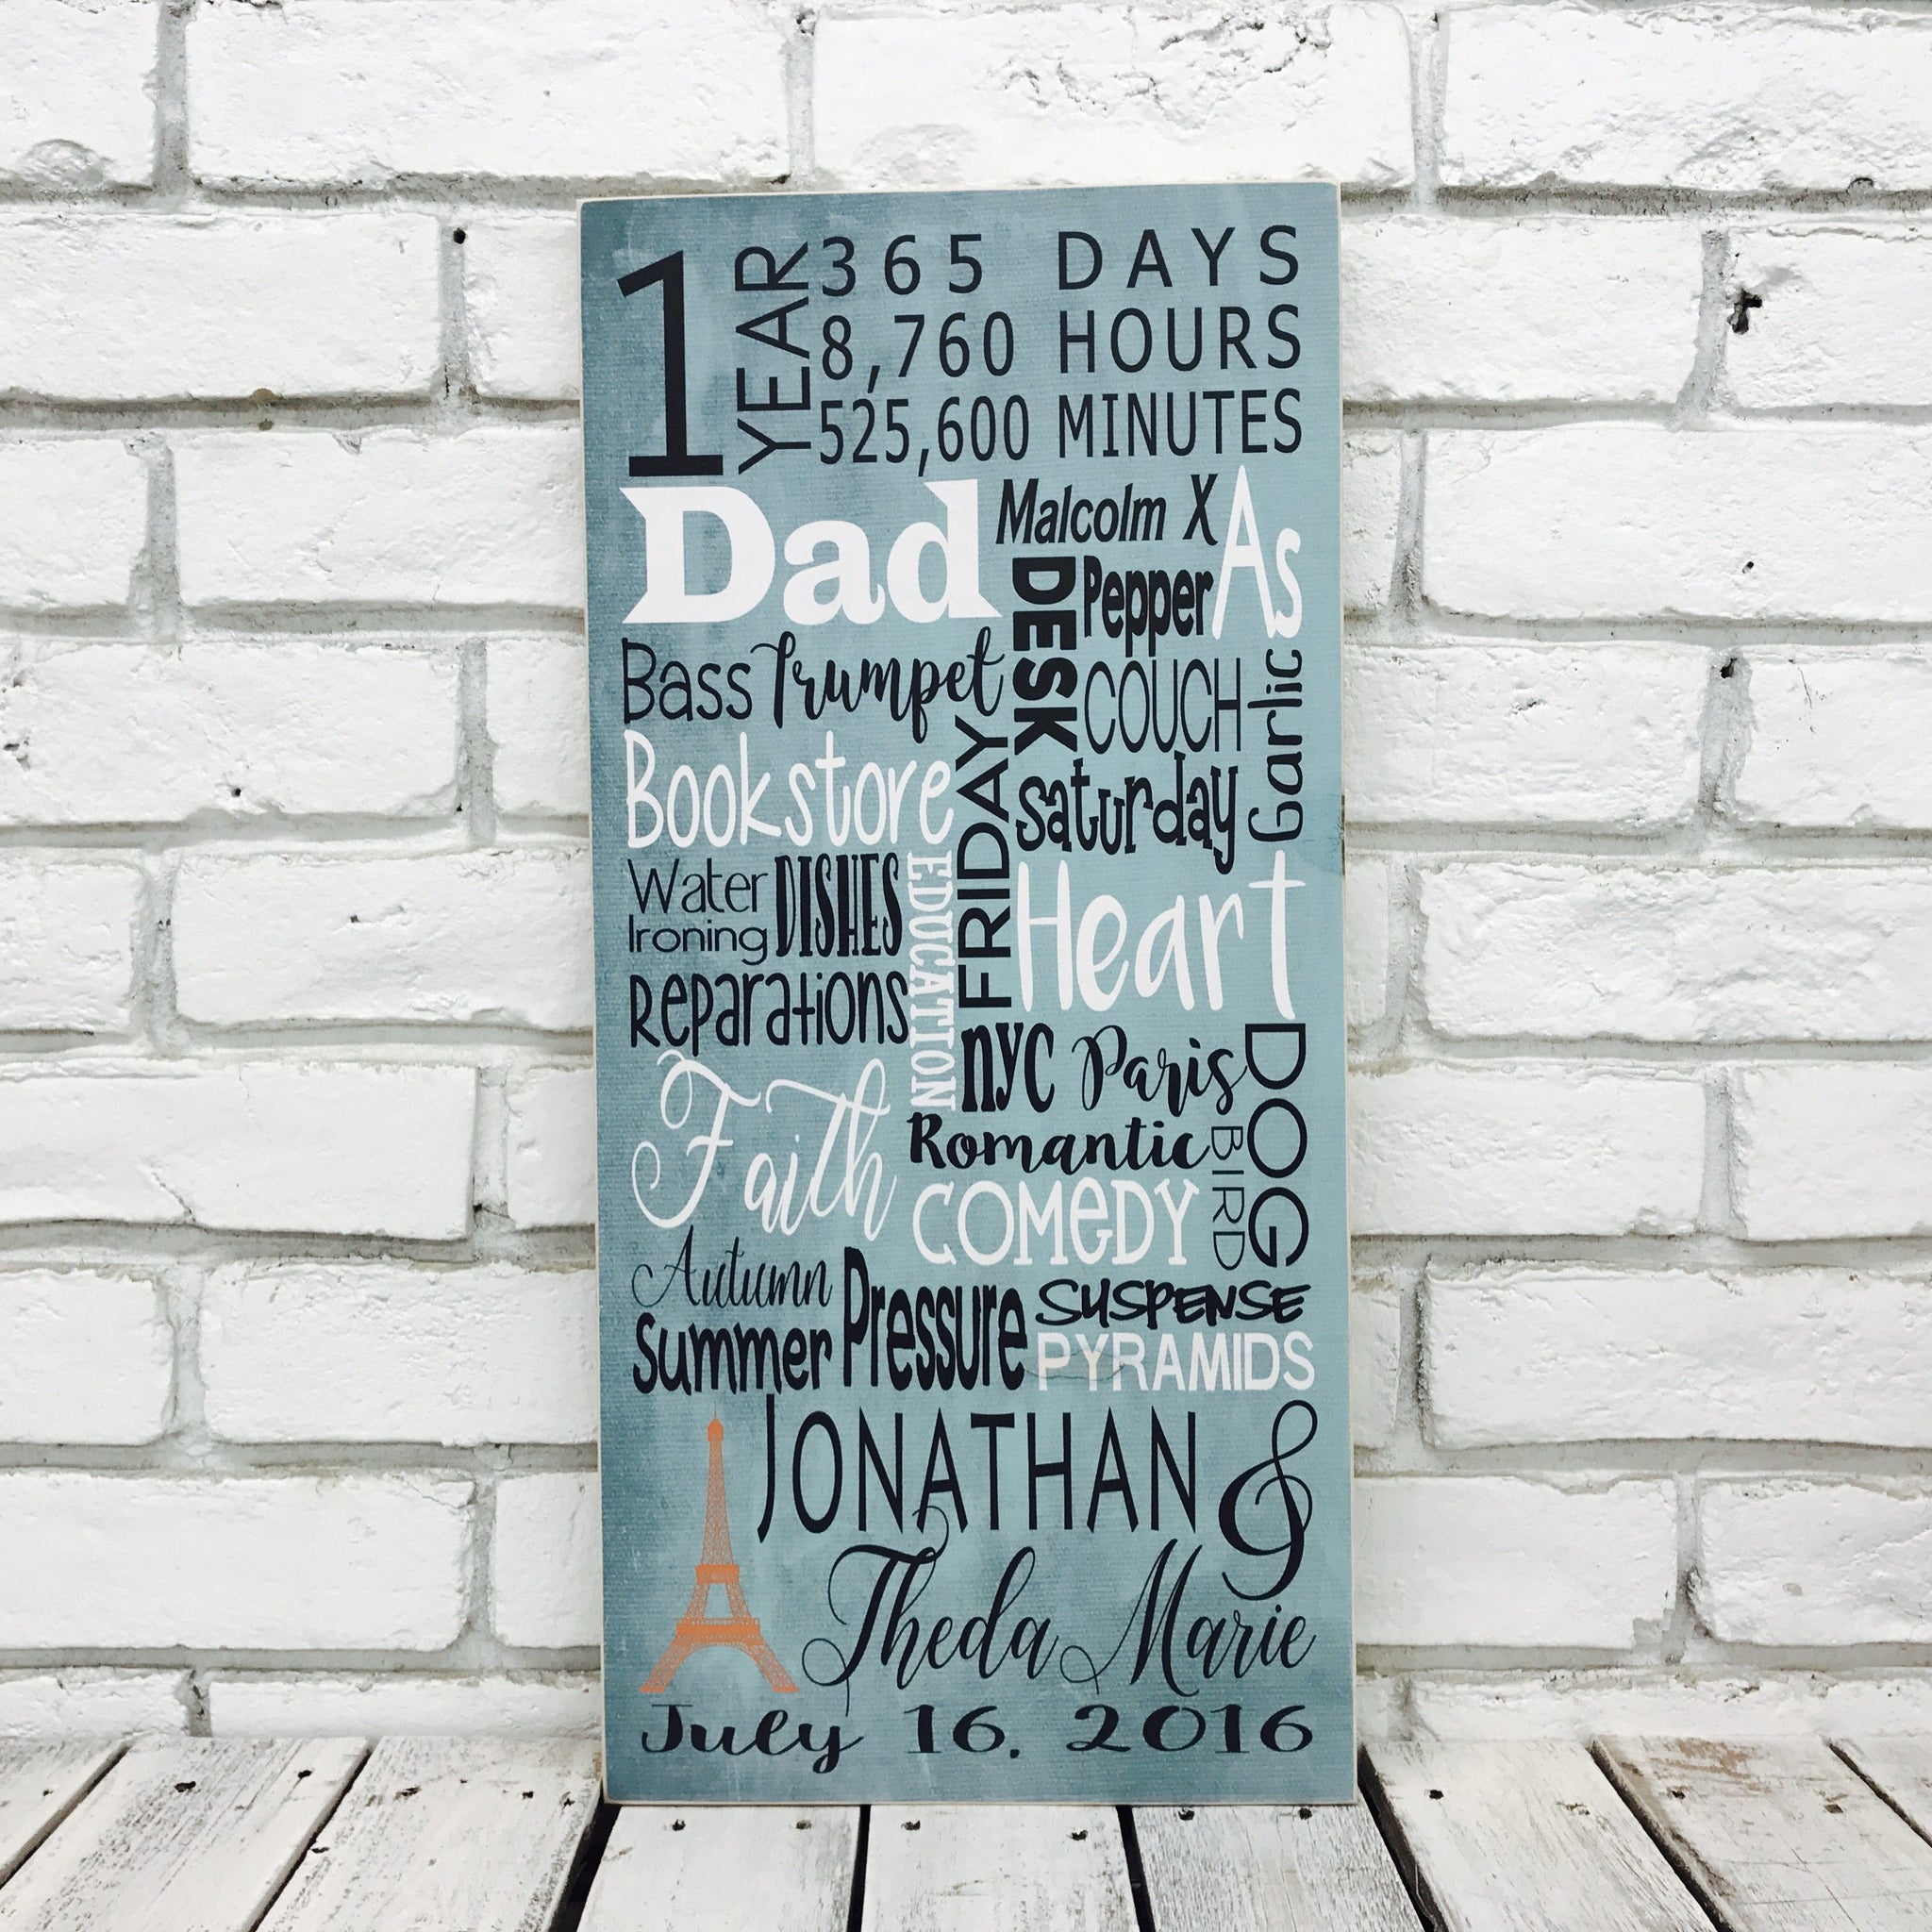 1 YEAR 365 DAYS
8,760 HOURS
525,600 MINUTES
Dad Malcolm X As
DESK Pepper
Bass Trumpet COUCH Garlic
Bookstore FRIDAY Saturday
Water DISHES EDUCATION Heart
Ironing
Reparations
nyc Paris DOG
Faith Romantic BIRD
COMeDY
Autumn Pressure SUSPENSE
Summer PYRAMIDS
JONATHAN &
Theda Marie
July 16. 2016